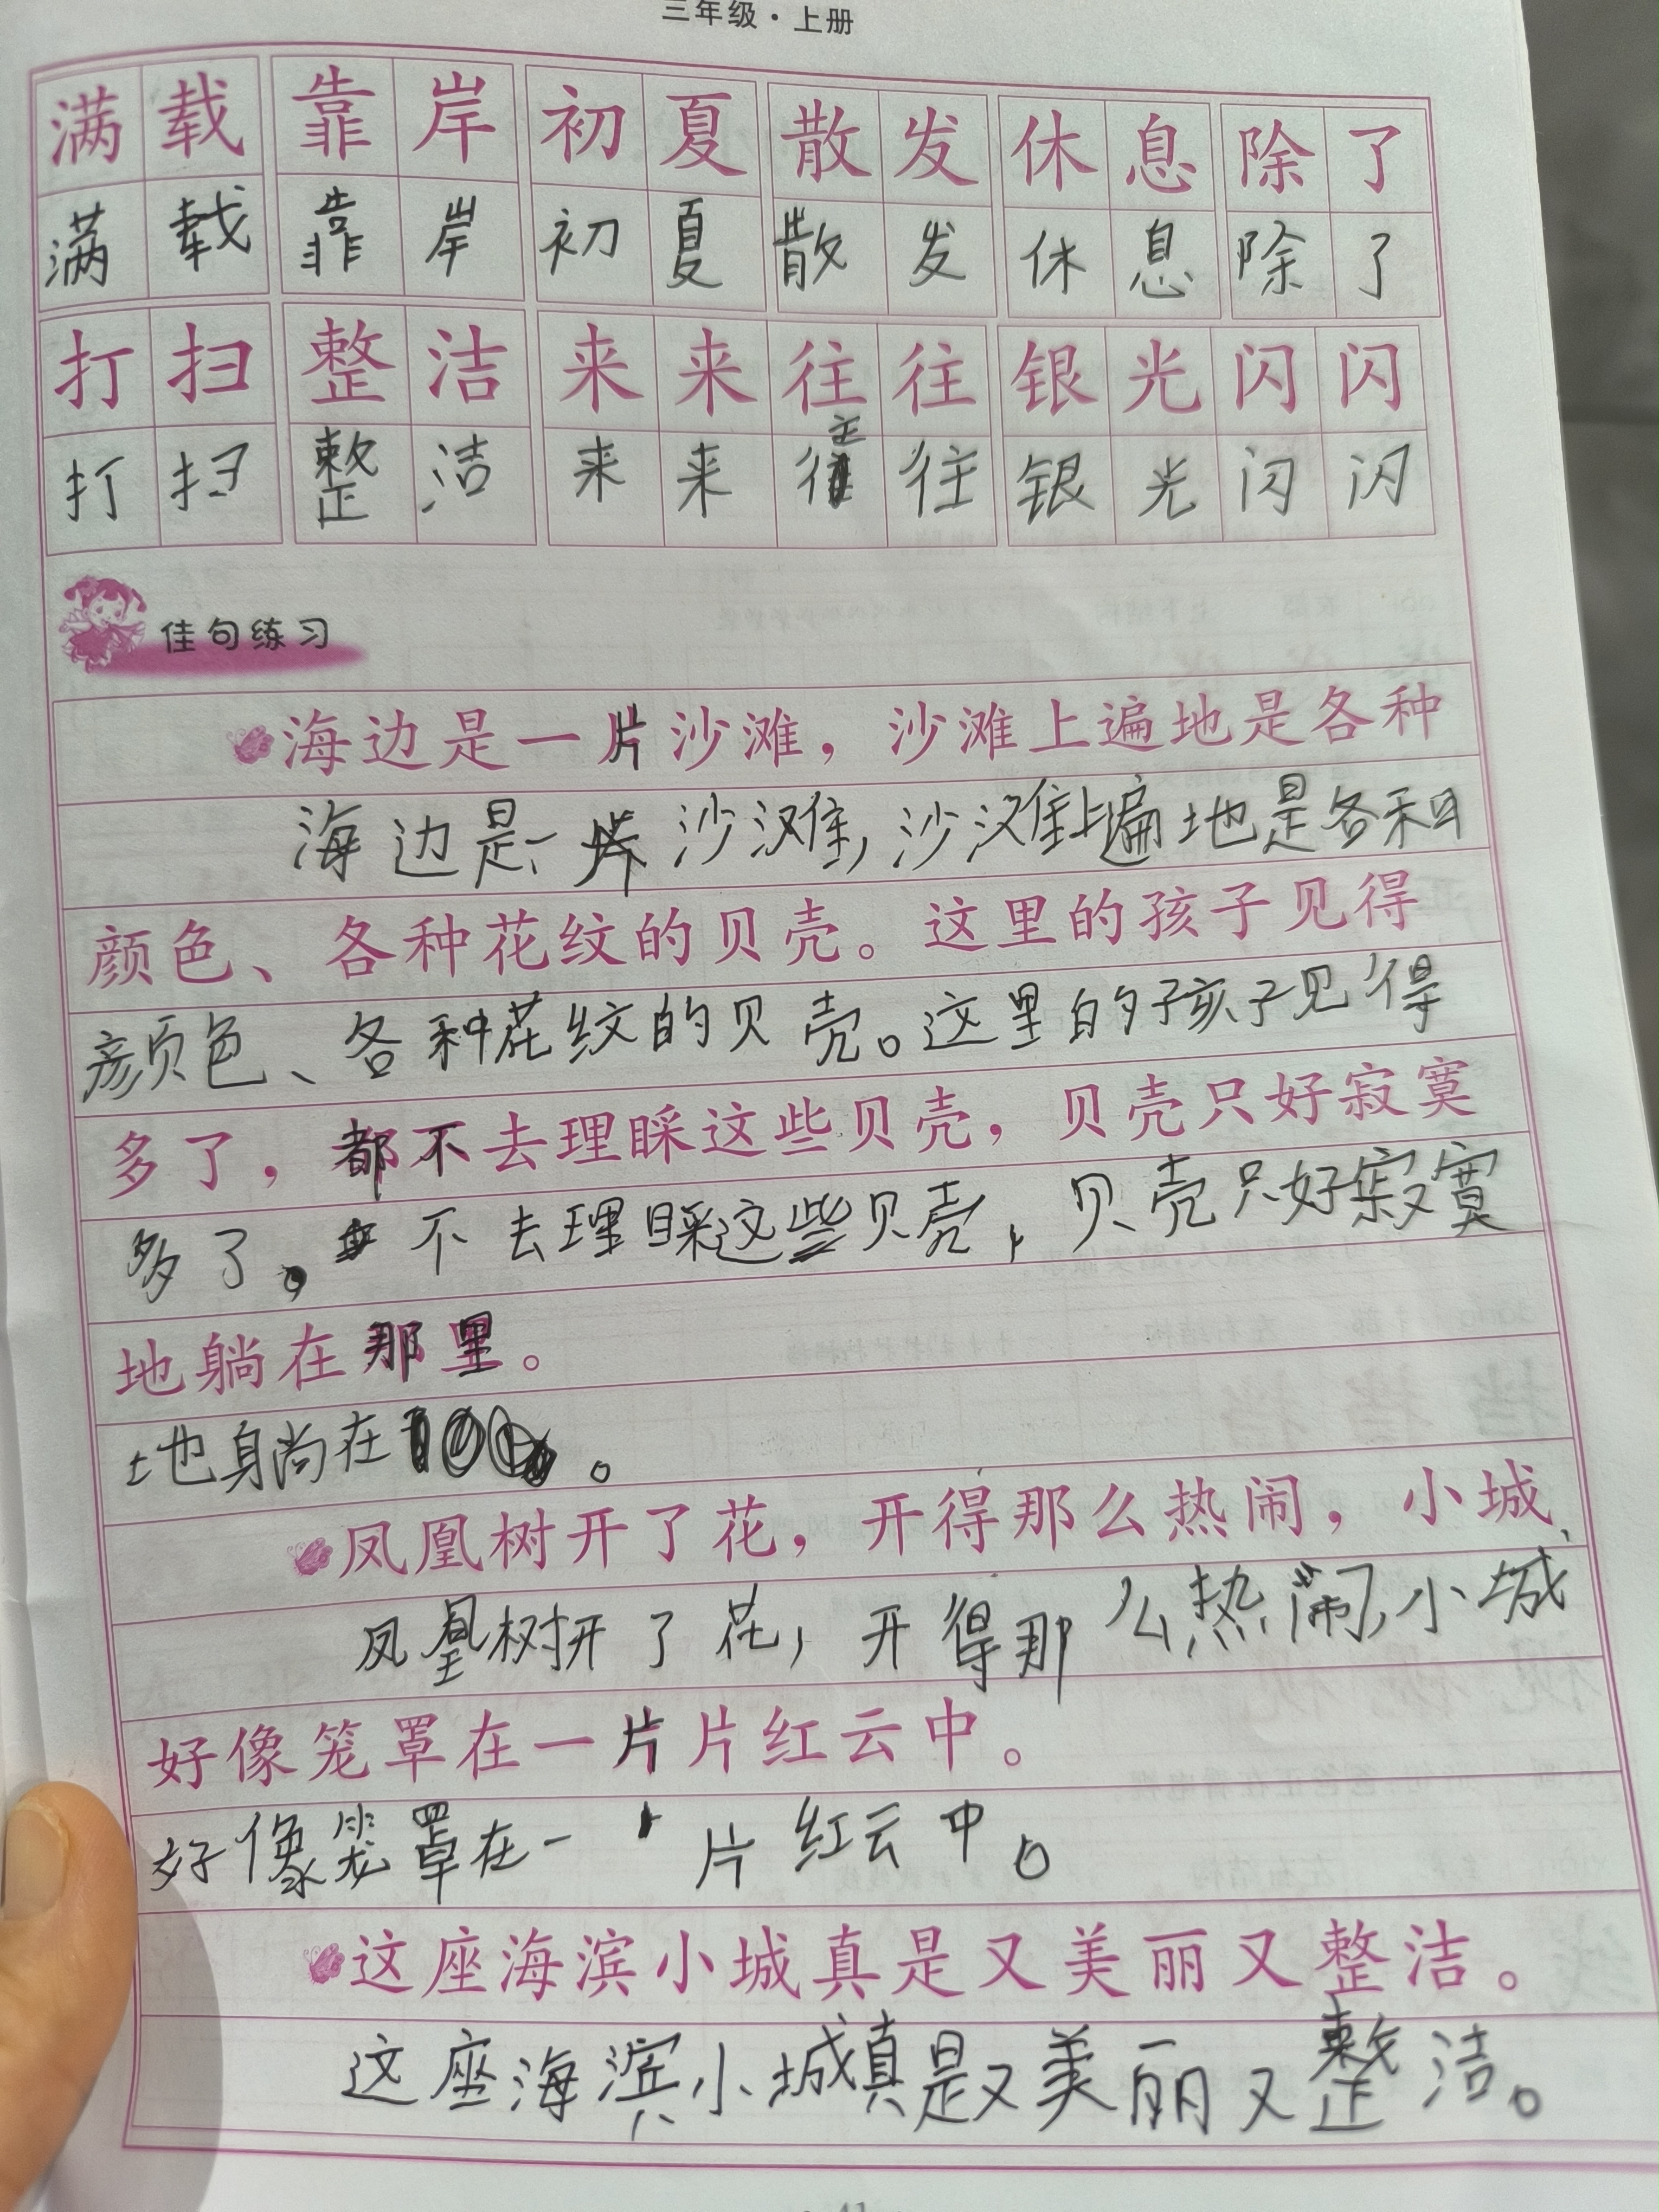 三年级·上册
满载 靠岸 初夏 散发 休息 除了
满载 靠岸 初夏 散发 休息 除了
打扫 整洁 来来往往 银光闪闪
打扫 整洁 来来往往 银光闪闪
佳句练习
海边是一片沙滩，沙滩上遍地是各种
海边是一片沙滩，沙滩上遍地是各种
颜色、各种花纹的贝壳。这里的孩子见得
颜色、各种花纹的贝壳。这里的孩子见得
多了，都不去理睬这些贝壳，贝壳只好寂寞
多了。不去理睬这些贝壳，贝壳只好寂寞
地躺在那里。
地躺在。
凤凰树开了花，开得那么热闹，小城
凤凰树开了花，开得那么热闹，小城
好像笼罩在一片片红云中。
好像笼罩在一片红云中。
这座海滨小城真是又美丽又整洁。
这座海滨小城真是又美丽又整洁。